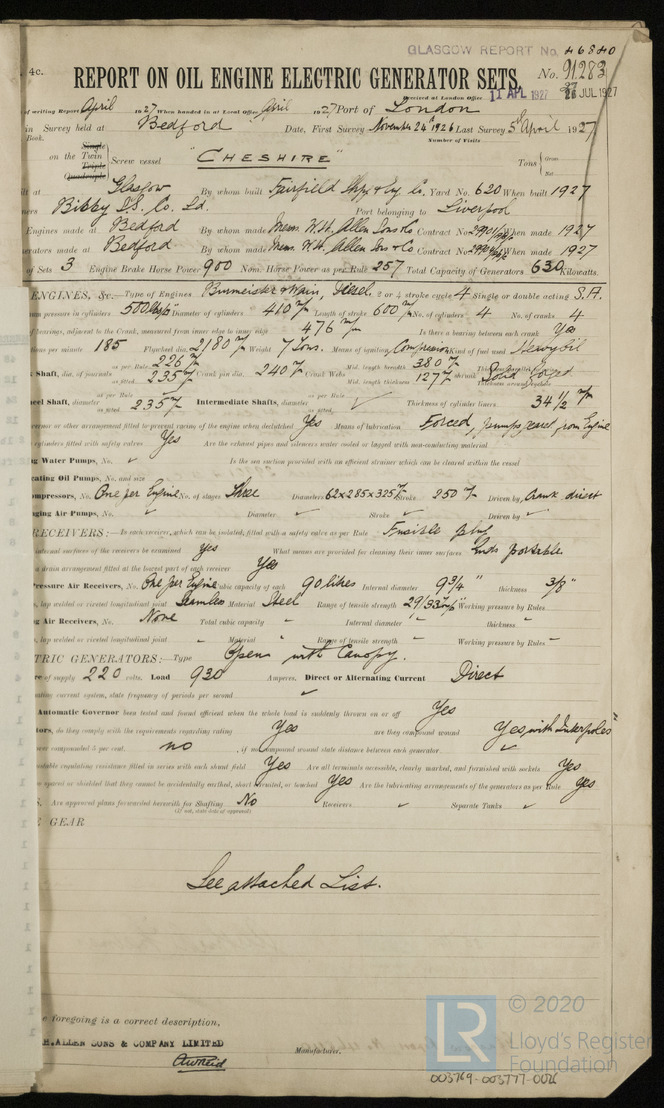 GLASGOW REPORT No. 46840
4c. REPORT ON OIL ENGINE ELECTRIC GENERATOR SETS. No. 91283
Received at London Office 11 APL 1927 JUL 1927
of writing Report April 1927 When handed in at Local Office April 1927 Port of London
in Survey held at Bedford Date, First Survey November 24th 1926 Last Survey 5th April 1927
Book. Number of Visits
on the Single Twin Triple Quadruple Screw vessel "CHESHIRE" Tons Gross Net
ilt at Glasgow By whom built Fairfield Shp. & Eng Co. Yard No. 620 When built 1927
ners Bibby S.S. Co. Ld. Port belonging to Liverpool
Engines made at Bedford By whom made Messrs. W.H. Allen Sons & Co Contract No. When made 1927
erators made at Bedford By whom made Messrs. W.H. Allen Sons & Co Contract No. When made 1927
of Sets 3 Engine Brake Horse Power 900 Nom. Horse Power as per Rule 257 Total Capacity of Generators 630 Kilowatts.
ENGINES, &c. Type of Engines Burmeister & Wain, Diesel. 2 or 4 stroke cycle 4 Single or double acting S.A.
um pressure in cylinders 500 Diameter of cylinders 410 m/m Length of stroke 600 m/m No. of cylinders 4 No. of cranks 4
f bearings, adjacent to the Crank, measured from inner edge to inner edge 476 m/m Is there a bearing between each crank Yes
ions per minute 185 Flywheel dia. 2180 m/m Weight 7 Tons. Means of ignition Compression Kind of fuel used Heavy Oil
Shaft, dia. of journals as per Rule 226 m/m as fitted 235 m/m Crank pin dia. 240 m/m Crank Webs Mid. length breadth 380 m/m Mid. length thickness 127 m/m shrunk Solid Forged
eel Shaft, diameter as per Rule as fitted 235 m/m Intermediate Shafts, diameter as per Rule as fitted ✓ Thickness of cylinder liners 34 1/2 m/m
vernor or other arrangement fitted to prevent racing of the engine when declutched Yes Means of lubrication Forced, from Engine
cylinders fitted with safety valves Yes Are the exhaust pipes and silencers water cooled or lagged with non-conducting material
ng Water Pumps, No. ✓ Is the sea suction provided with an efficient strainer which can be cleared within the vessel
cating Oil Pumps, No. and size
ompressors, No. One per Engine No. of stages Three Diameters 62x285x325 m/m Stroke 250 m/m Driven by Crank direct
nging Air Pumps, No. ✓ Diameter ✓ Stroke ✓ Driven by ✓
RECEIVERS:— Is each receiver, which can be isolated, fitted with a safety valve as per Rule Fusible plug
internal surfaces of the receivers be examined Yes What means are provided for cleaning their inner surfaces Ends portable
a drain arrangement fitted at the lowest part of each receiver Yes
Pressure Air Receivers, No. One per Engine Cubic capacity of each 90 litres Internal diameter 9 3/4" thickness 3/8"
s, lap welded or riveted longitudinal joint Seamless Material Steel Range of tensile strength 29/33 Working pressure by Rules
ng Air Receivers, No. None Total cubic capacity ✓ Internal diameter ✓ thickness ✓
s, lap welded or riveted longitudinal joint ✓ Material " Range of tensile strength ✓ Working pressure by Rules
TRIC GENERATORS:— Type Open with Canopy.
re of supply 220 volts. Load 930 Amperes. Direct or Alternating Current Direct
nating current system, state frequency of periods per second ✓
Automatic Governor been tested and found efficient when the whole load is suddenly thrown on or off Yes
tors, do they comply with the requirements regarding rating Yes are they compound wound Yes with Interpoles
ver compounded 5 per cent. no , if not compound wound state distance between each generator ✓
ustable regulating resistances fitted in series with each shunt field Yes Are all terminals accessible, clearly marked, and furnished with sockets Yes
so spaced or shielded that they cannot be accidentally earthed, short circuited, or touched Yes Are the lubricating arrangements of the generators as per Rule Yes
S. Are approved plans forwarded herewith for Shafting No Receivers ✓ Separate Tanks ✓
(If not, state date of approval)
E GEAR
See attached List.
e foregoing is a correct description,
H. ALLEN SONS & COMPANY LIMITED
Manufacturer.
© 2020
LR Lloyd's Register
Foundation
003769-003777-0026